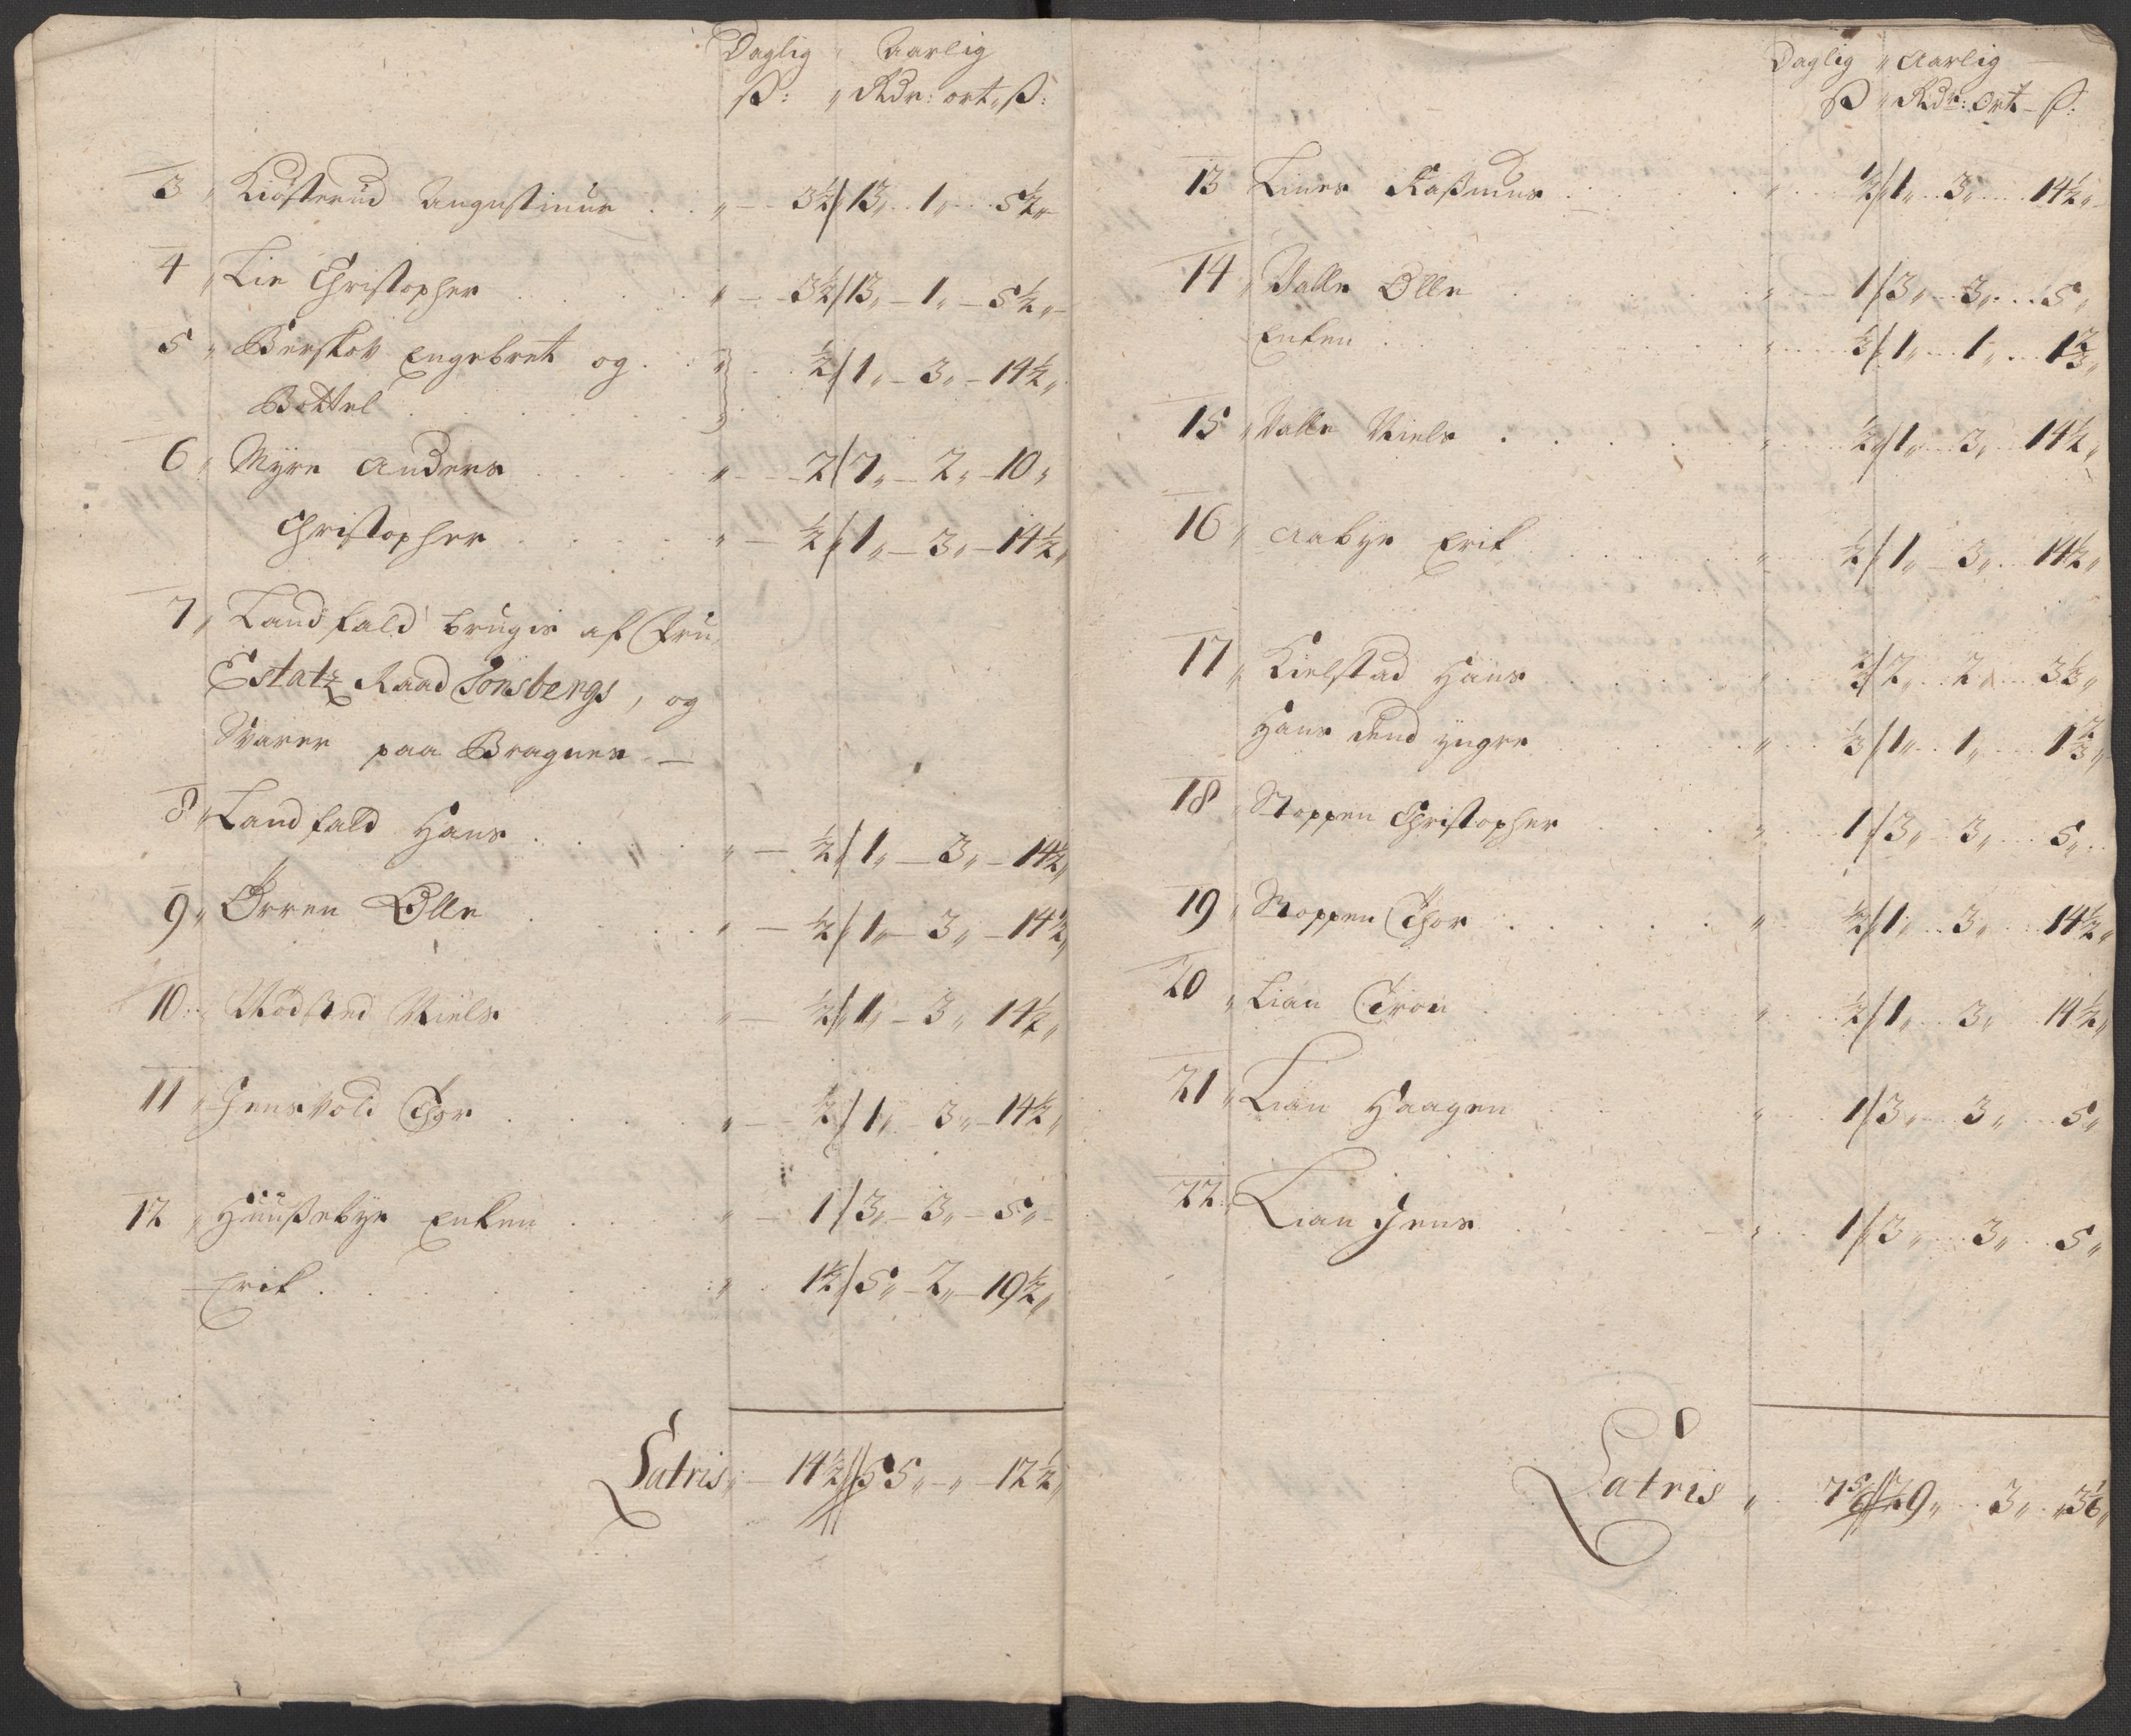 Daglig „ Aarlig
ß: „ Rdr: ort „ ß:
3 „ Kiøsterud Augustinus . . „ 3½ / 13 „ 1 „ 5½ „
4 „ Lie Christopher . . . „ 3½ / 13 „ 1 „ 5½ „
5 „ Berskov Engebret og . . „ ½ / 1 „ 3 „ 14½ „
Bottel . . . „
6 „ Myre Anders . . . „ 2 / 7 „ 2 „ 10 „
Christopher . . . „ ½ / 1 „ 3 „ 14½ „
7 „ Landfald brugis af Fru
Estatz Raad Tonsbergs, og
Svarer paa Bragnes —
8 „ Landfald Hans . . . „ ½ / 1 „ 3 „ 14½ „
9 „ Ørren Olle . . . „ ½ / 1 „ 3 „ 14½ „
10 „ Niels „ ½ / 1 „ 3 „ 14½ „
11 „ Jensvold Thor . . . „ ½ / 1 „ 3 „ 14½ „
12 „ Huußebye Enken . . . „ 1 / 3 „ 3 „ 5 „
Erik . . . „ 1½ / 5 „ 2 „ 19½ „
Latris „ 14½ // 55 „ „ 12½ „
Daglig „ Aarlig
ß „ Rdr: Ort ß:
13 Lines Raßmus . . . „ ½ / 1 „ 3 „ 14½ „
14 „ Valle Olle . . . „ 1 / 3 „ 3 „ 5 „
Enken . . . „ ⅓ / 1 „ 1 „ 1⅔ „
15 „ Valle Niels . . . „ ½ / 1 „ 3 „ 14½ „
16 „ Aabye Erik . . . „ ½ / 1 „ 3 „ 14½ „
17 „ Kielstad Hans . . . „ ⅔ / 2 „ 2 „ 3⅓ „
Hans dend yngre . . . „ ⅓ / 1 „ 1 „ 1⅔ „
18 „ Stoppen Christopher . . . „ 1 / 3 „ 3 „ 5 „
19 „ Stoppen Thor . . . „ ½ / 1 „ 3 „ 14½ „
20 „ Lian Tron . . . „ ½ / 1 „ 3 „ 14½ „
21 „ Lian Haagen . . . „ 1 / 3 „ 3 „ 5 „
22 „ Lian Jens . . . „ 1 / 3 „ 3 „ 5 „
Latris „ 7⅚ // 29 „ 3 „ 3⅙ „